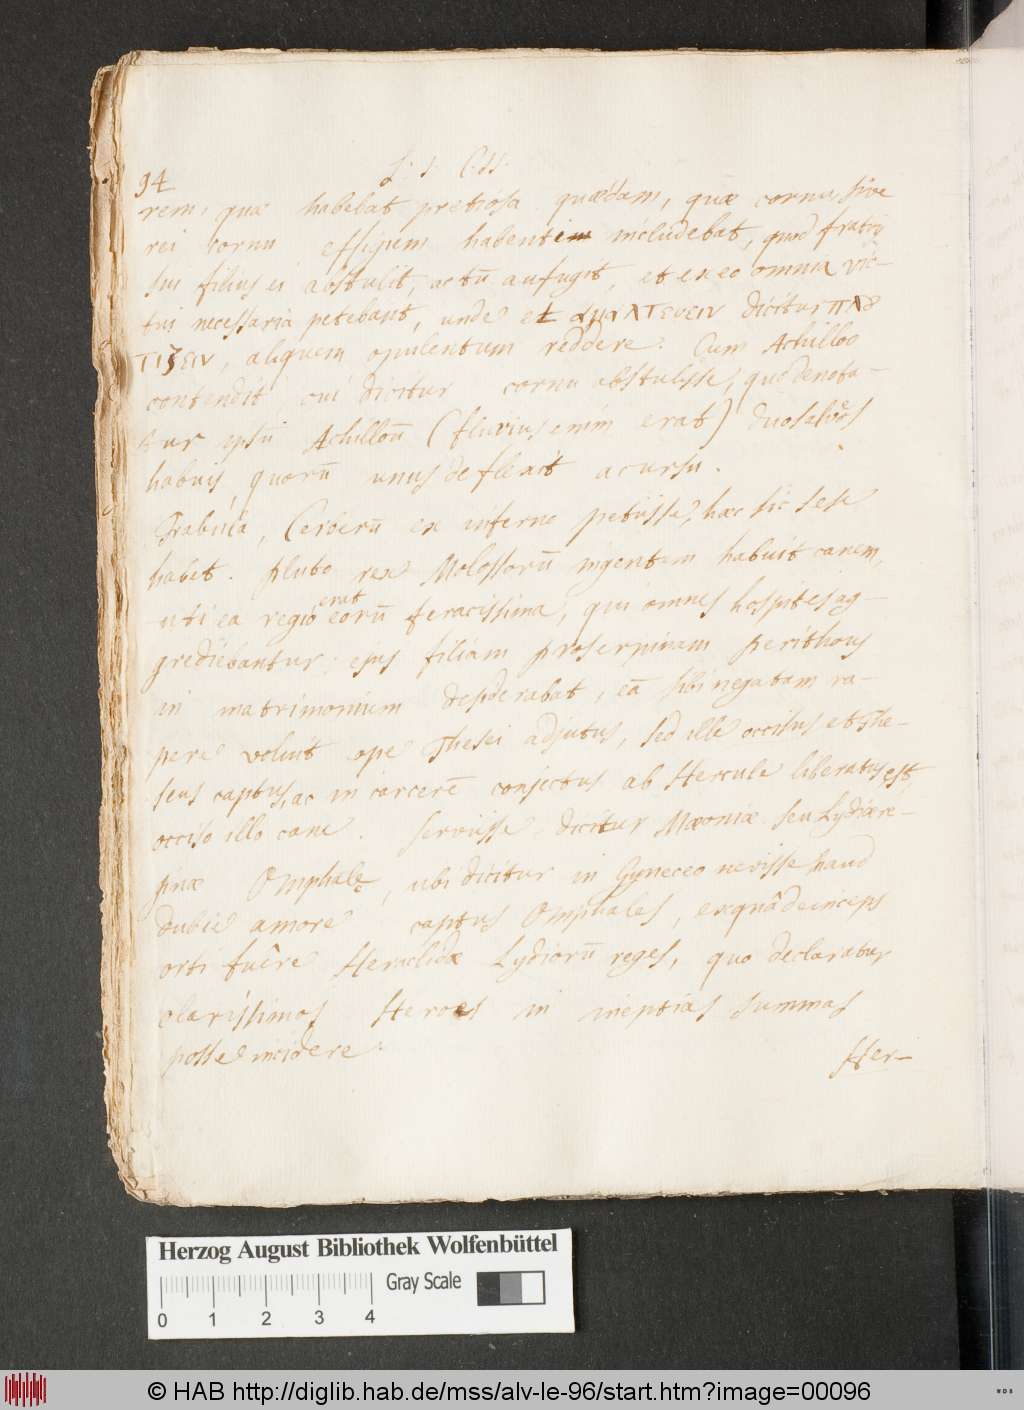 94 L. s. C. ss.
rem, quæ habebat pretiosa quædam, quæ cornu sive
rei cornu effigiem habentem includebat, quod fratris
sui filius ei abstulit, ac tū aufugit, et ex eo omnia vic-
tui necessaria petebant, unde et dicitur πλȣ
τιζειν, aliquem opulentum reddere. Cum Achilloo
contendit cui dicitur cornu abstulisse, quo denota-
tur ipsū Achilloū (fluvius enim erat) duos alveos
habuis, quorū unus deflexit a cursu.
Frabula, Cerberū ex inferno petiisse, hæc sic sese
habet. Pluto rex Molossorū ingentem habuit canem,
uti ea regio erat eorū feracissima, qui omnes hospites ag-
grediebantur; ejus filiam Proserpinam Perithous
in matrimonium desiderabat, eā sibi negatam ra-
pere voluit ope Thesei adjutus, sed ille occisus et The-
seus captus, ac in carcerē conjectus ab Hercule liberatus est,
occiso illo cane. Servisse dicitur Mæoniæ seu Lydiæ re-
ginæ Omphale, ubi dicitur in Gyneceo nevisse haud
dubie amore captus Omphales, ex quâ deinceps
orti fuêre Heraclidæ Lydiorū reges, quo declaratur
clarissimos Heroes in ineptias summas
posse incidere.
Her-
Herzog August Bibliothek Wolfenbüttel
0 1 2 3 4 Gray Scale
© HAB http://diglib.hab.de/mss/alv-le-96/start.htm?image=00096